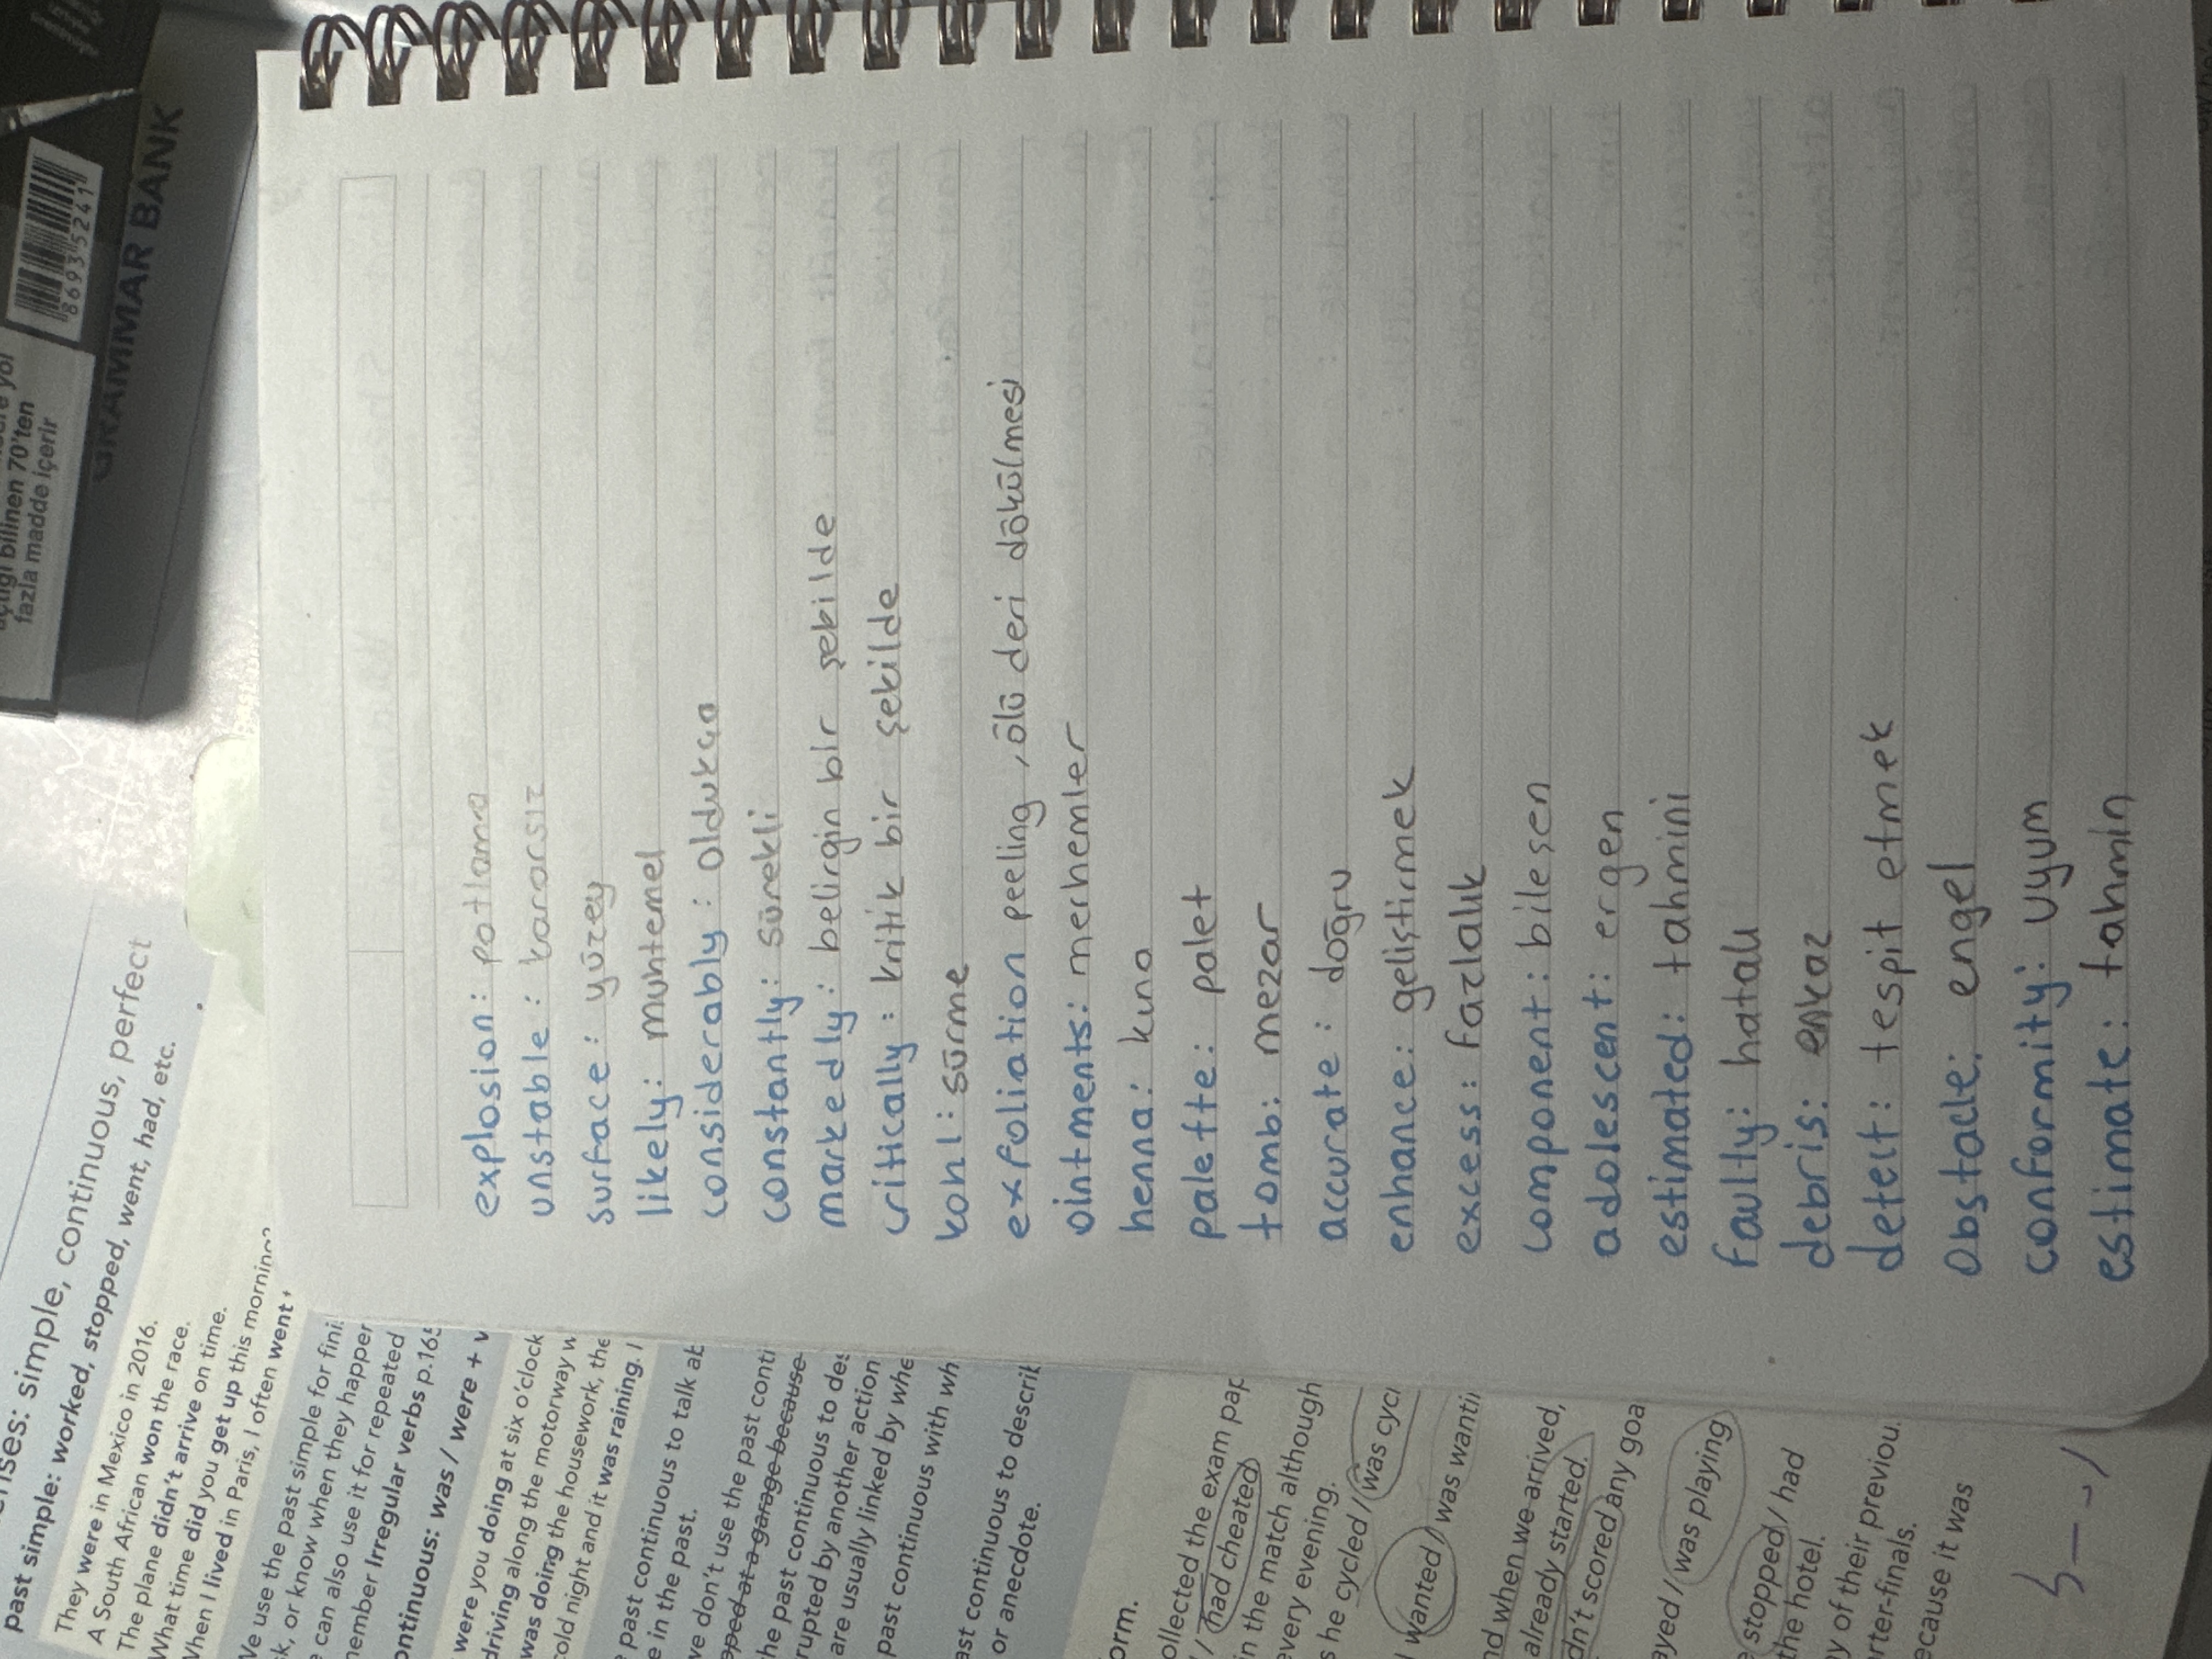 enses: simple, continuous, perfect
past simple: worked, stopped, went, had, etc.
They were in Mexico in 2016.
A South African won the race.
The plane didn't arrive on time.
What time did you get up this morning?
When I lived in Paris, I often went t
We use the past simple for fini
sk, or know when they happen
e can also use it for repeated
member Irregular verbs p.165
ontinuous: was / were + v
were you doing at six o'clock
driving along the motorway w
was doing the housework, the
cold night and it was raining. I
e past continuous to talk ab
e in the past.
we don't use the past conti
pped at a garage because
he past continuous to des
rupted by another action
are usually linked by whe
past continuous with wh
ast continuous to describ
or anecdote.
orm.
ollected the exam pap
/ had cheated
in the match although
every evening.
s he cycled / was cycl
wanted / was wantin
nd when we arrived,
already started.
dn't scored any goa
ayed / was playing
e stopped / had
the hotel.
ny of their previou
arter-finals.
ecause it was
açtığı bilinen 70'ten
fazla madde içerir
86935241
GRAMMAR BANK
explosion: patlama
unstable: kararsız
surface: yüzey
likely: muhtemel
considerably: oldukça
constantly: sürekli
markedly: belirgin bir şekilde
critically: kritik bir şekilde
kohl: sürme
exfoliation peeling, ölü deri dökülmesi
ointments: merhemler
henna: kına
palette: palet
tomb: mezar
accurate: doğru
enhance: geliştirmek
excess: fazlalık
component: bileşen
adolescent: ergen
estimated: tahmini
faulty: hatalı
debris: enkaz
detect: tespit etmek
obstacle: engel
conformity: uyum
estimate: tahmin